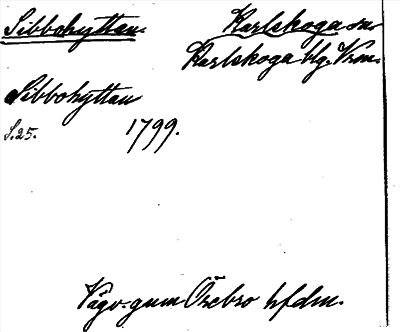 Sibbohyttan. Karlskoga sn.
Karlskoga blg. Vrm.
Sibbohyttan
S. 25. 1799.
Vägv. gnm Örebro hfdm.